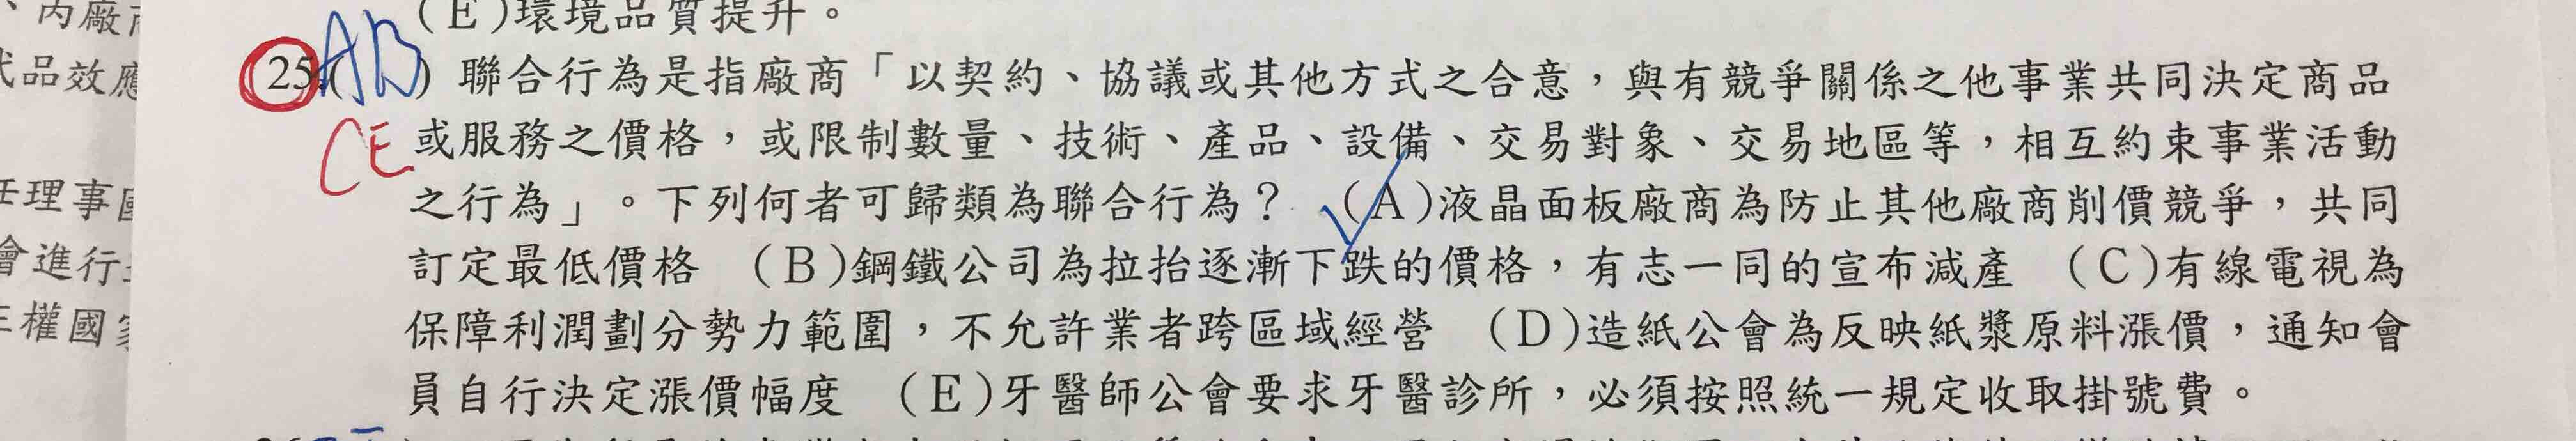 (E)環境品質提升。
、內廠
25.(AB) 聯合行為是指廠商「以契約、協議或其他方式之合意，與有競爭關係之他事業共同決定商品
品效應
CE
或服務之價格，或限制數量、技術、產品、設備、交易對象、交易地區等，相互約束事業活動
理事國
之行為」。下列何者可歸類為聯合行為？ (A)液晶面板廠商為防止其他廠商削價競爭，共同
會進行
訂定最低價格 (B)鋼鐵公司為拉抬逐漸下跌的價格，有志一同的宣布減產 (C)有線電視為
權國
保障利潤劃分勢力範圍，不允許業者跨區域經營 (D)造紙公會為反映紙漿原料漲價，通知會
員自行決定漲價幅度 (E)牙醫師公會要求牙醫診所，必須按照統一規定收取掛號費。